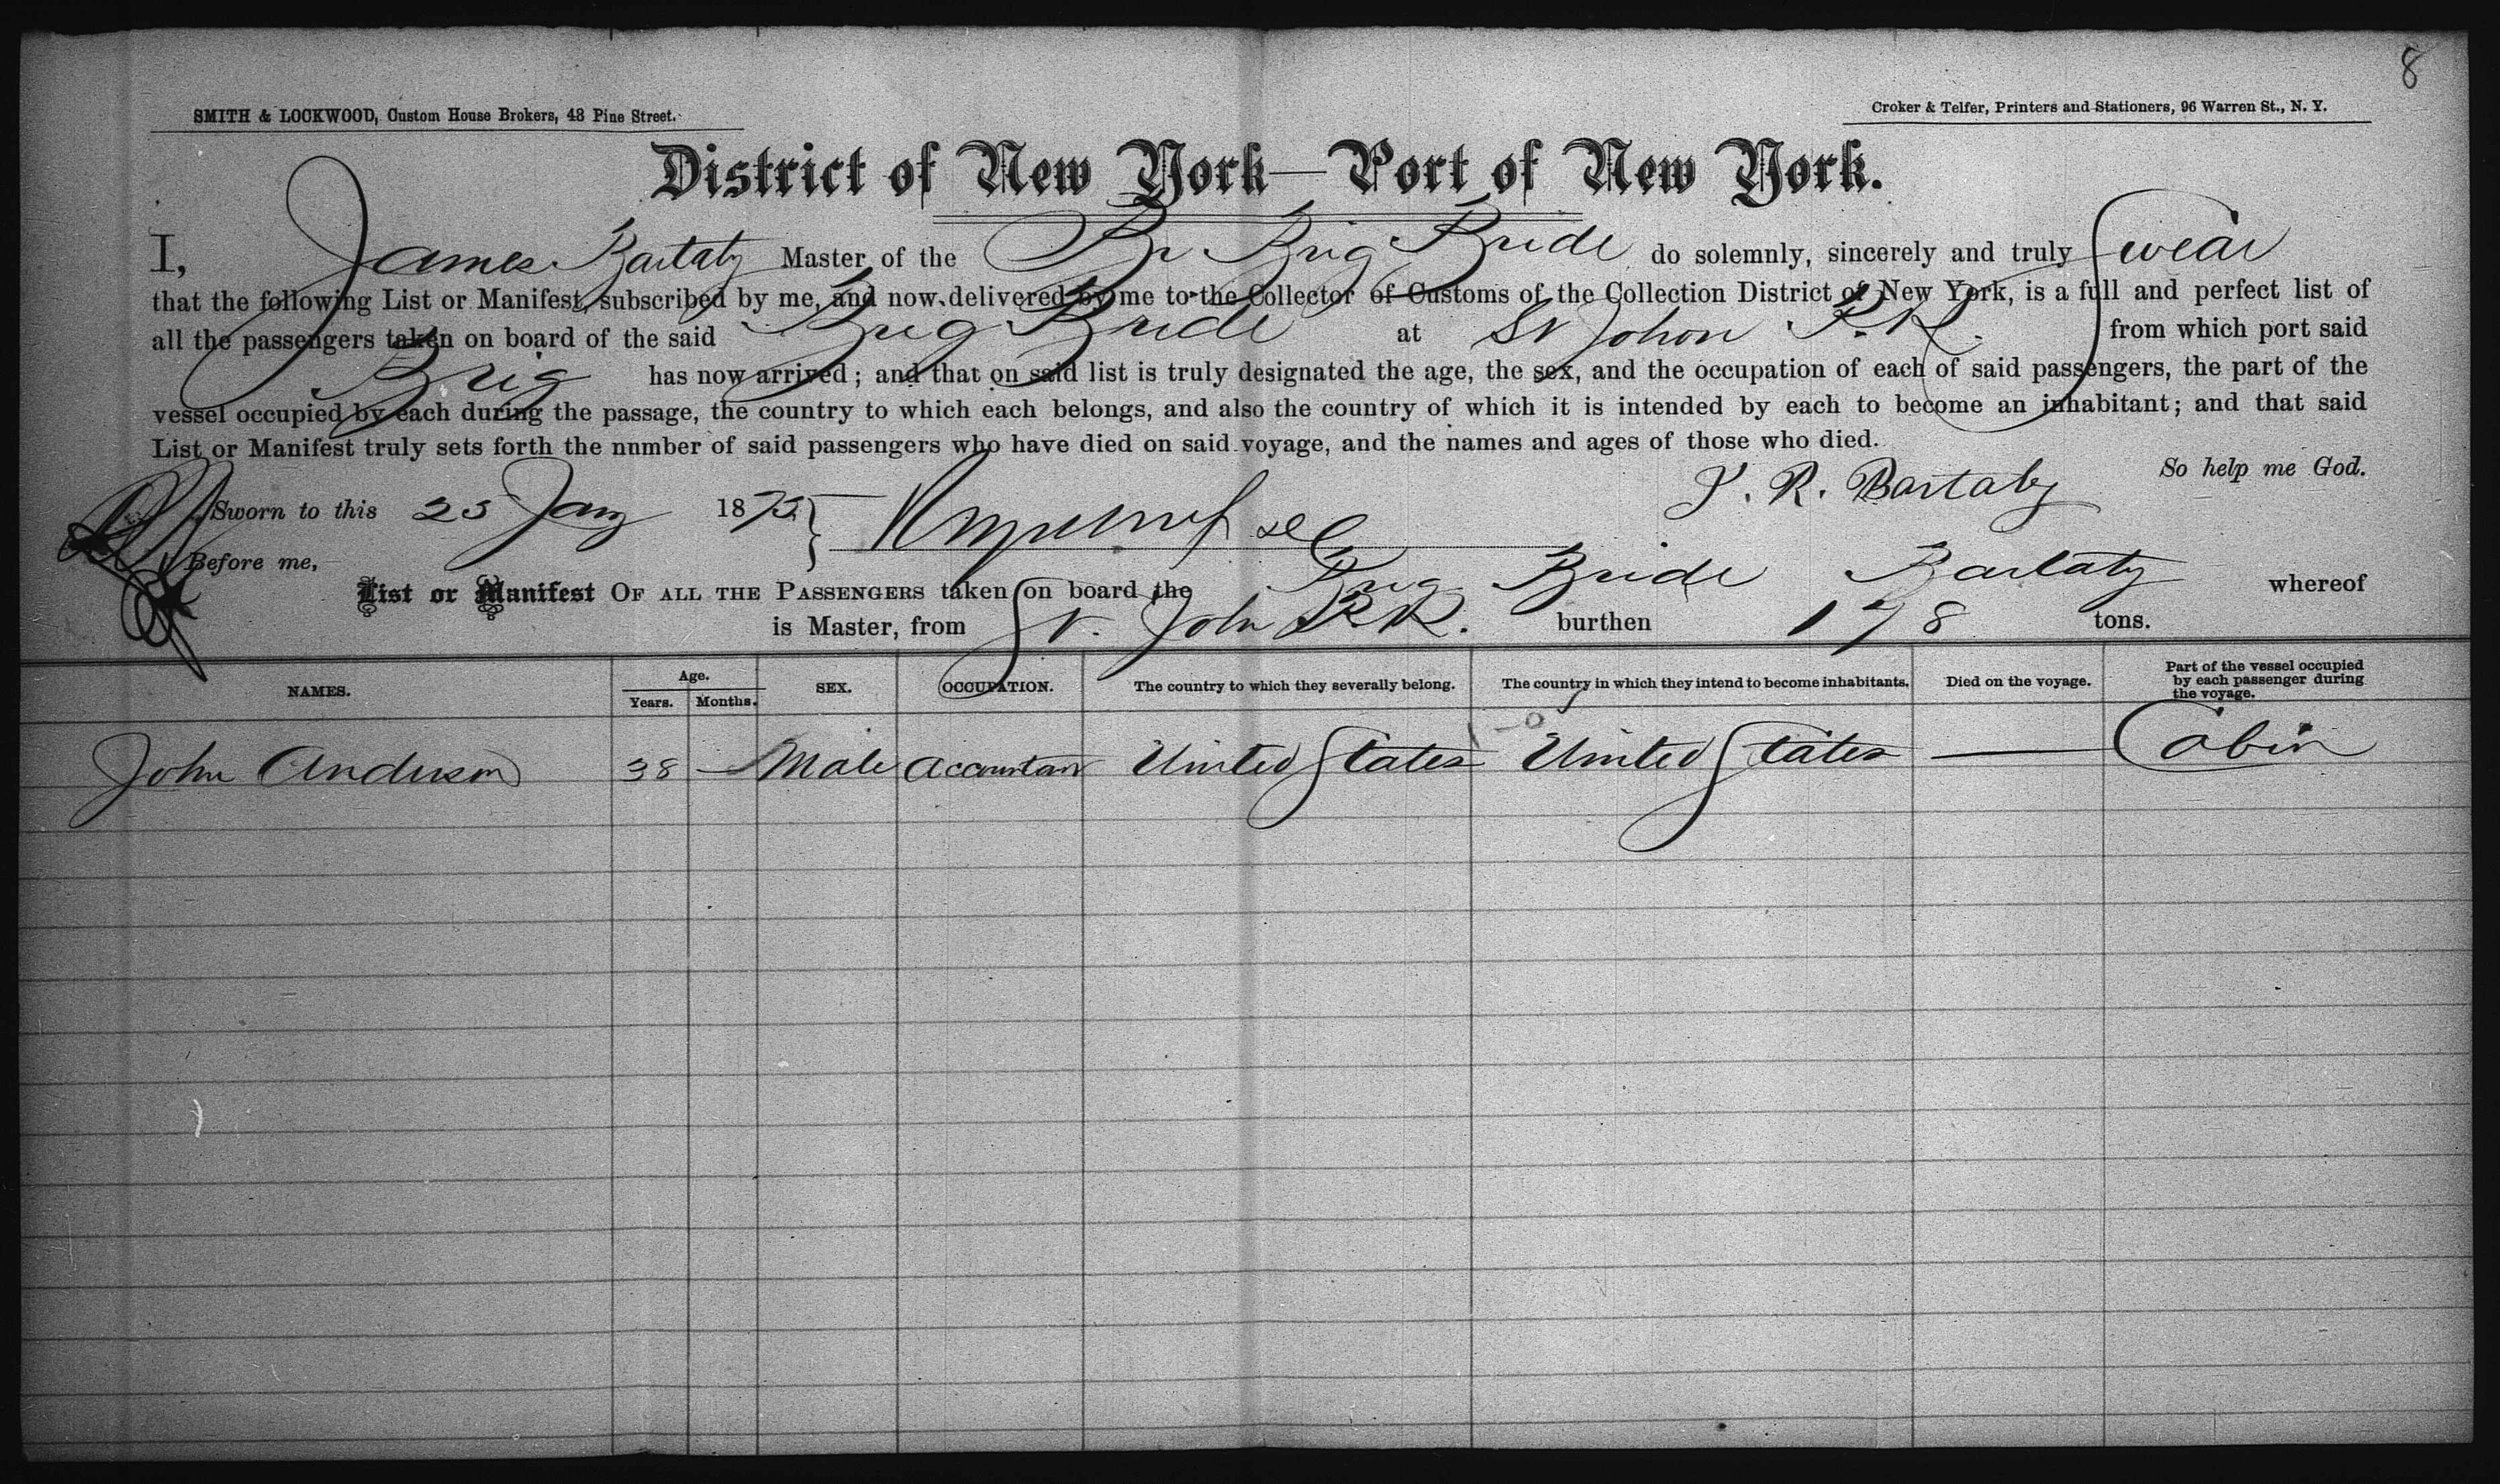 8
SMITH & LOCKWOOD, Custom House Brokers, 48 Pine Street.
Croker & Telfer, Printers and Stationers, 96 Warren St., N. Y.
District of New York—Port of New York.
I, James Bartaby Master of the Br Brig Bride do solemnly, sincerely and truly Swear
that the following List or Manifest, subscribed by me, and now delivered by me to the Collector of Customs of the Collection District of New York, is a full and perfect list of
all the passengers taken on board of the said Brig Bride at St Johon P.R. from which port said
Brig has now arrived; and that on said list is truly designated the age, the sex, and the occupation of each of said passengers, the part of the
vessel occupied by each during the passage, the country to which each belongs, and also the country of which it is intended by each to become an inhabitant; and that said
List or Manifest truly sets forth the number of said passengers who have died on said voyage, and the names and ages of those who died.
So help me God.
J. R. Bartaby
Sworn to this 23 Jany 1873
Before me,
List or Manifest OF ALL THE PASSENGERS taken on board the Brig Bride Bartaby whereof
is Master, from St. John P.R. burthen 178 tons.
NAMES. Age. Years. Months. SEX. OCCUPATION. The country to which they severally belong. The country in which they intend to become inhabitants. Died on the voyage. Part of the vessel occupied by each passenger during the voyage.
John Anderson 38 — Male Accountant United States United States — Cabin